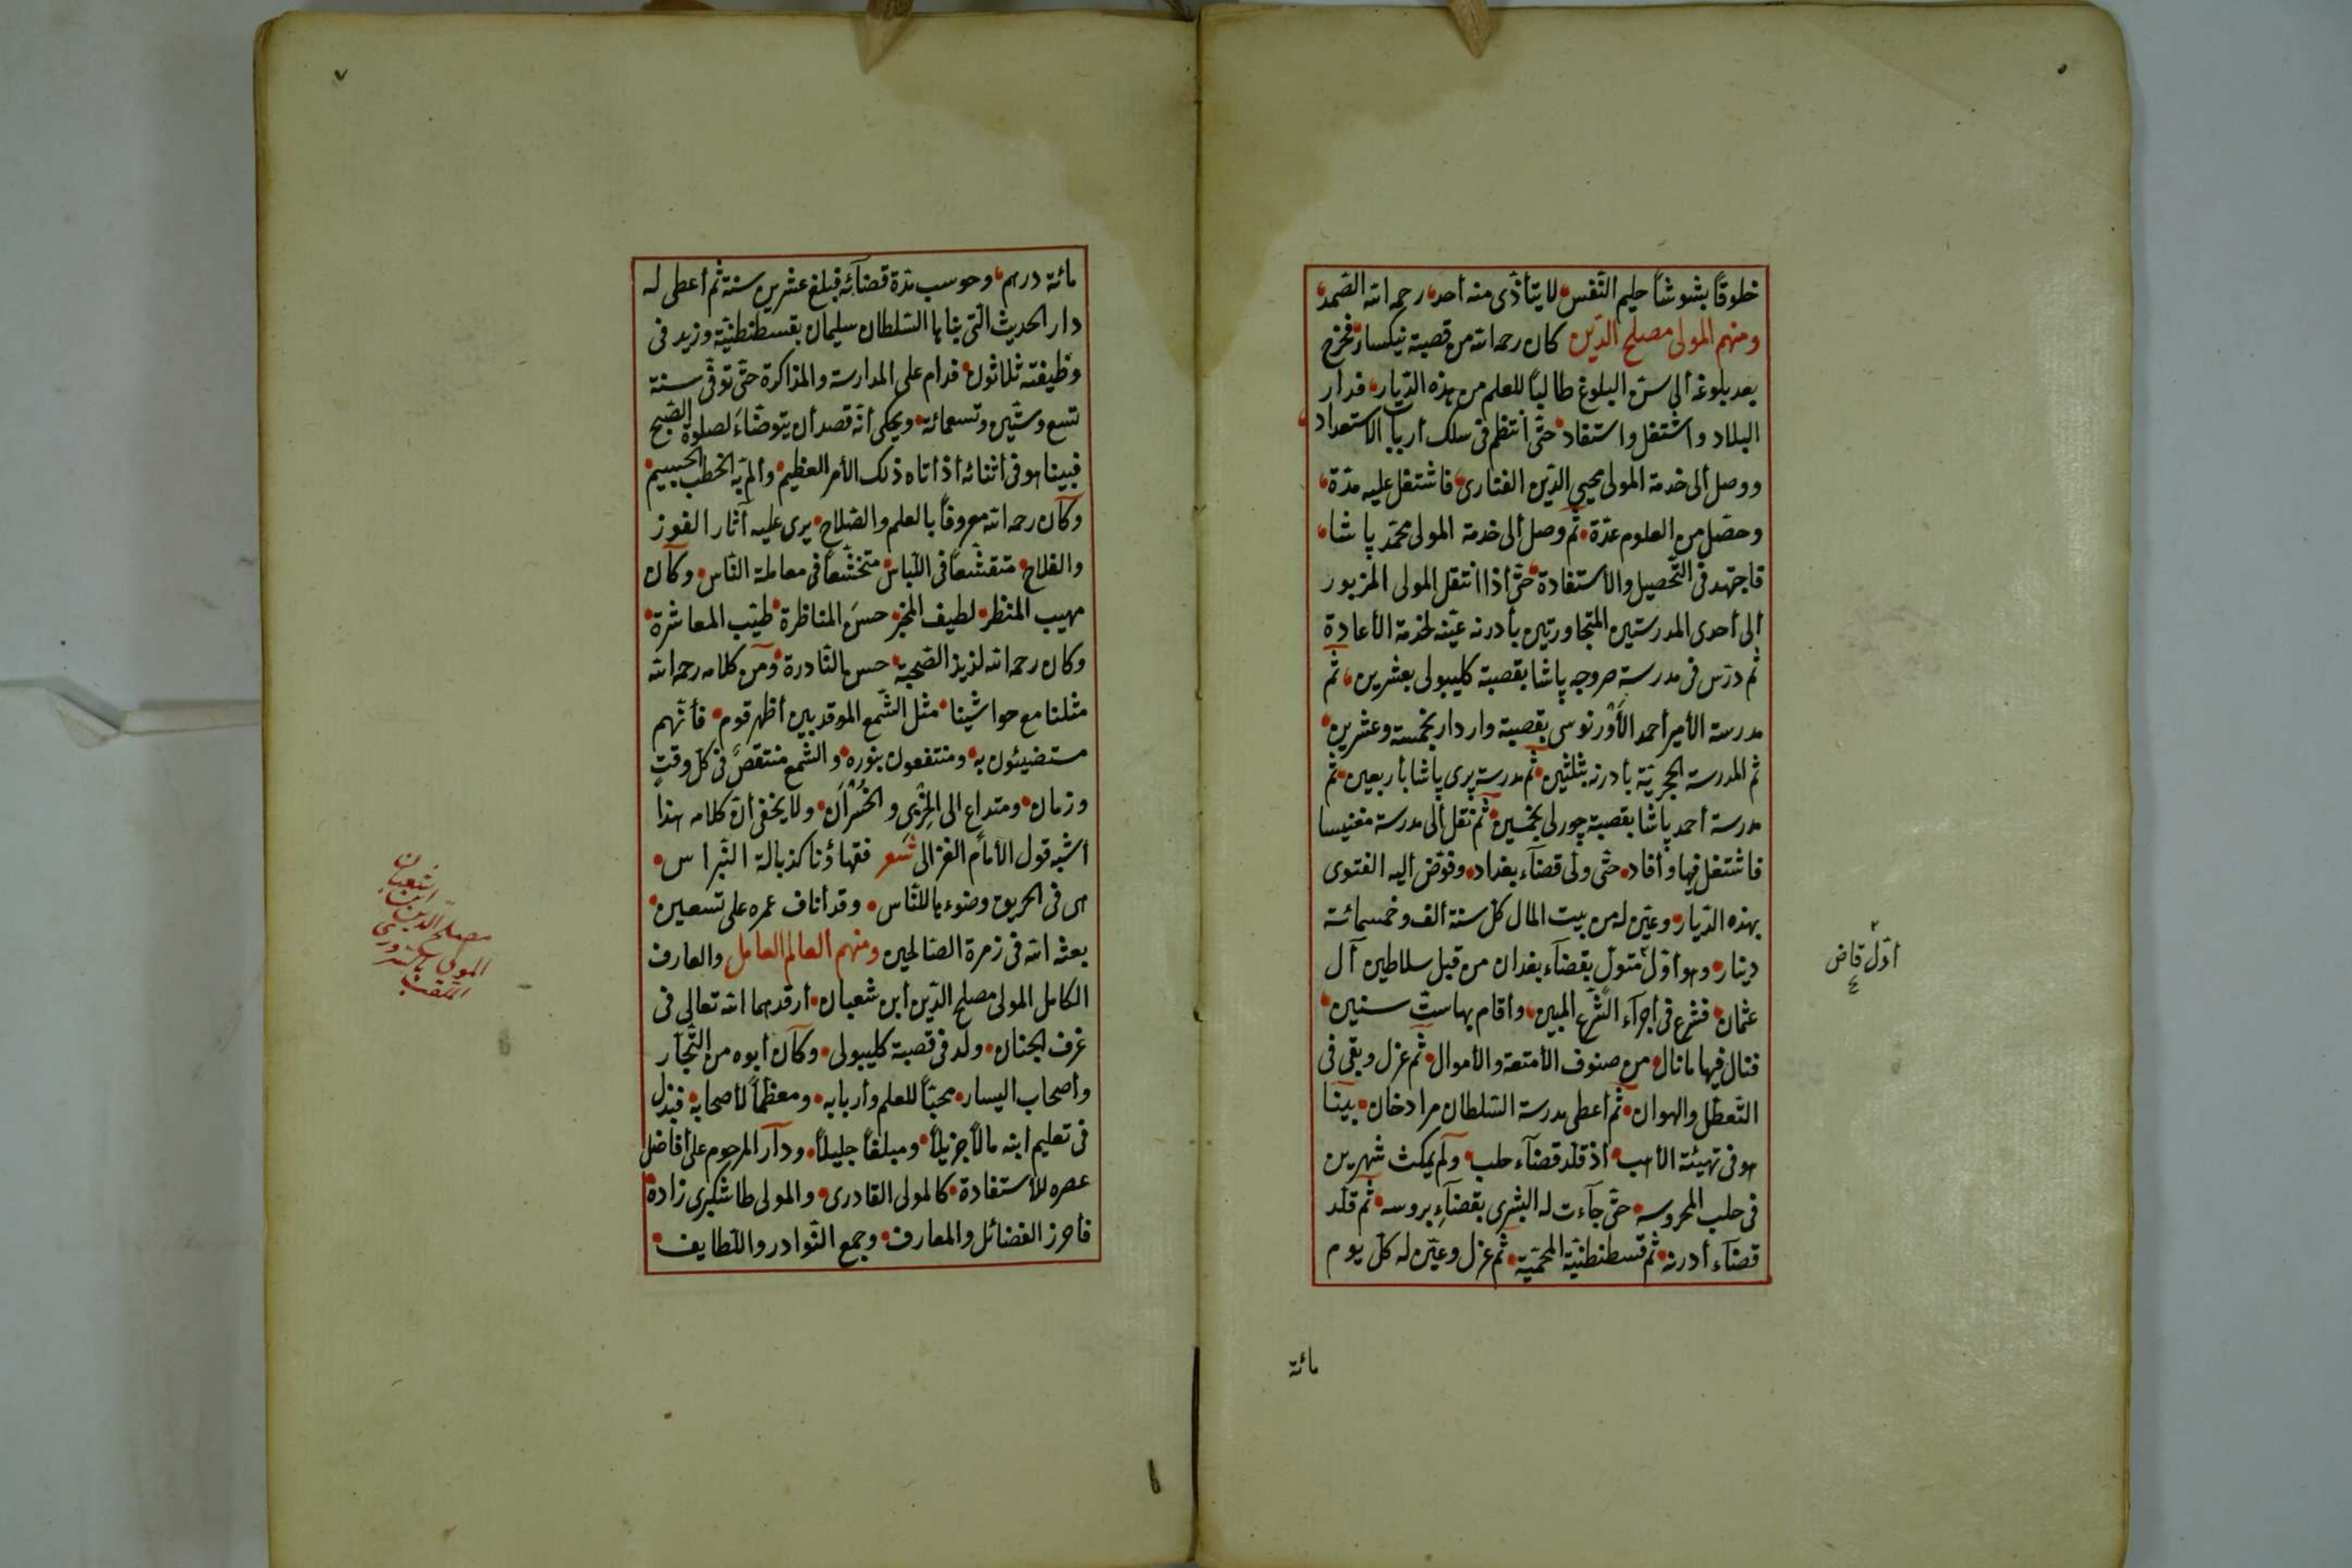 خلوقاً بشوشاً حليم النّفس لا يتأذّى منه أحد رحمه الله الصّمد
ومنهم المولى مصلح الدّين كان رحمه الله من قصبة نيكسار فخرج
بعد بلوغه ألى سنّ البلوغ طالباً للعلم من هذه الدّيار فدار
البلاد واشتغل واستفاد حتّى أنتظم فى سلك أرباب الاستعداد
ووصل ألى خدمة المولى محيي الدّين الفنارى فاشتغل عليه مدّة
وحصّل من العلوم عدّة ثم وصل ألى خدمة المولى محمّد پاشا
فاجتهد فى التّحصيل والأستفادة حتّى أذا انتقل المولى المزبور
ألى أحدى المدرستين المتجاورتين بأدرنه عيّنه لخدمة الأعادة
ثم درّس فى مدرسة صروجه پاشا بقصبة كليبولى بعشرين ثم
مدرسة الأمير أحمد الأورنوسى بقصبة واردار بخمسة وعشرين
ثم المدرسة الحجريّة بأدرنه بثلثين ثم مدرسة پرى پاشا بأربعين ثم
مدرسة أحمد پاشا بقصبة چورلى بخمسين ثم نقل ألى مدرسة مغنيسا
فاشتغل فيها وأفاد حتّى ولّى قضآء بغداد وفوّض أليه الفتوى
بهذه الدّيار وعيّن له من بيت المال كل سنة ألف وخمسمائة
دينار وهو أوّل متولّ بقضآء بغدان من قبل سلاطين آل
عثمان فشرع فى أجرآء الشّرع المبين وأقام بها ستّ سنين
فنال فيها ما نال من صنوف الأمتعة والأموال ثم عزل وبقى فى
التّعطّل والهوان ثم أعطى مدرسة السّلطان مرادخان بينا
هو فى تهيئة الأهب أذ قلّد قضآء حلب ولم يمكث شهرين
فى حلب المحروسه حتّى جآءت له البشرى بقضآء بروسه ثم قلّد
قضآء أدرنه ثم قسطنطنيّة المحميّة ثم عزل وعيّن له كلّ يوم
مائة
أوّل قاض
مائة درهم وحوسب مدّة قضآئه فبلغ عشرين سنة ثم أعطى له
دار الحديث الّتى بناها السّلطان سليمان بقسطنطنيّة وزيد فى
وظيفته ثلاثون فدام على المدارسة والمذاكرة حتّى توفّى سنة
تسع وستّين وتسعمائة ويحكى أنّه قصد أن يتوضّاء لصلوة الصّبح
فبينا هو فى أثنائه أذ أتاه ذلك الأمر العظيم وألمّ به الخطب الجسيم
وكان رحمه الله معروفاً بالعلم والصّلاح يرى عليه آثار الفوز
والفلاح متقشّفاً فى اللّباس متخشّعاً فى معاملة النّاس وكان
مهيب المنظر لطيف المخبر حسن المناظرة طيّب المعاشرة
وكان رحمه الله لذيذ الصّحبة حسن النّادرة ومن كلامه رحمه الله
مثلنا مع حواشينا مثل الشّمع الموقد بين أظهر قوم فأنّهم
مستضيئون به ومنتفعون بنوره والشّمع منتقص فى كلّ وقت
وزمان ومتداع الى الخزى والخسران ولا يخفى أنّ كلامه هذا
أشبه قول الأمام الغزالى شعر فقهاؤنا كذبالة النّبراس
هى فى الحريق وضوءها للنّاس وقد أناف عمره على تسعين
بعثه الله فى زمرة الصّالحين ومنهم العالم العامل والعارف
الكامل المولى مصلح الدّين أبن شعبان أرقدهما الله تعالى فى
غرف الجنان ولد فى قصبة كليبولى وكان أبوه من التّجّار
وأصحاب اليسار محبّاً للعلم وأربابه ومعظّماً لأصحابه فبذل
فى تعليم ابنه مالاً جزيلاً ومبلغاً جليلاً ودار المرحوم على أفاضل
عصره للأستفادة كالمولى القادرى والمولى طاشكبرى زاده
فأحرز الفضائل والمعارف وجمع النّوادر واللّطايف
شعبان
ابن
مصلح الدين
المولى
الملقب
٧